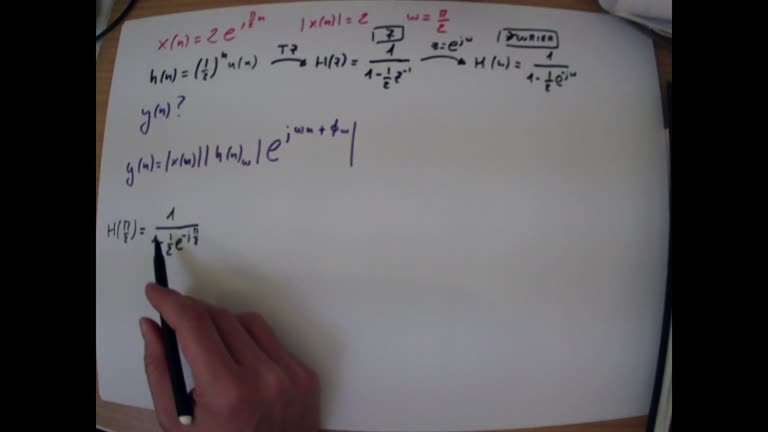 x(n) = 2e^{j\frac{π}{2}n} |x(n)| = 2 w = \frac{π}{2}
h(n) = (\frac{1}{2})^n u(n) TZ H(z) = \frac{1}{1-\frac{1}{2}z^{-1}} z = e^{jw} H(w) = \frac{1}{1-\frac{1}{2}e^{-jw}}
y(n)?
y(n) = |x(n)| |h(n)_w| e^{jwn + ϕw}
H(\frac{π}{2}) = \frac{1}{1-\frac{1}{2}e^{-j\frac{π}{2}}}